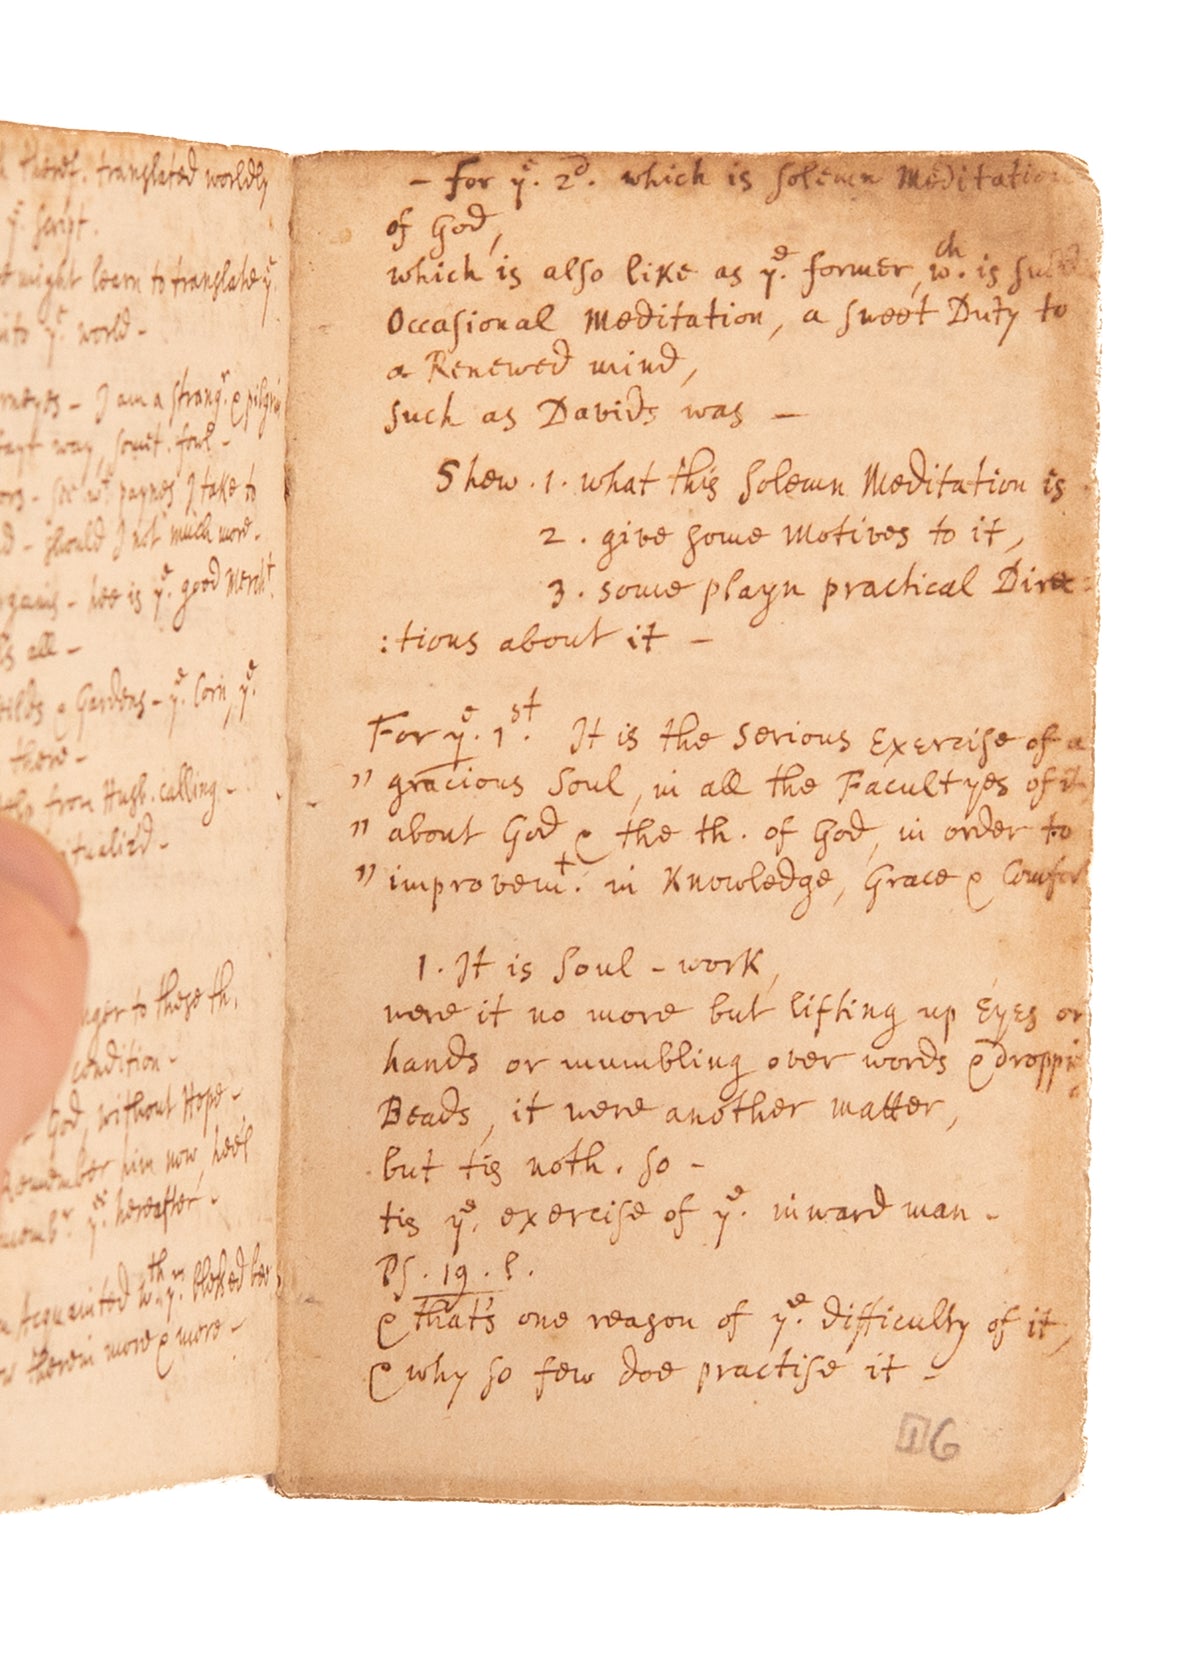 thersf. translated worldly
yͤ. script.
might learn to translate yͤ.
into yͤ. world -
- I am a strangʳ. & pilgri
way, somt. fowl -
- see wᵗ. paynes I take to
- should I not much more -
- hee is yͤ. good Mercht.
all -
& Gardens - yͤ. Corn, yͤ.
there -
from Husb. calling -
to these th.
condition -
God, without Hope -
Remember him now, hee'l
yᵐ. hereafter -
Acquainted wᵗʰ. yͤ. blessed
therein more & more -
- For yͤ. 2ᵈ. which is solemn Meditation
of God,
which is also like as yͤ. former, wᶜʰ. is
Occasional Meditation, a sweet Duty to
a Renewed mind,
such as Davids was -
Shew. 1. what this solemn Meditation is
2. give some Motives to it,
3. some playn practical Direc:
:tions about it -
For yͤ. 1ˢᵗ. It is the serious Exercise of a
" gracious Soul, in all the Facultyes of it
" about God & the th. of God, in order to
" improvemᵗ. in Knowledge, Grace & Comfort
1. It is Soul-work,
were it no more but lifting up Eyes or
hands or mumbling over words & droppi
Beads, it were another matter,
but tis noth. so -
tis yͤ. exercise of yͤ. inward man -
Ps. 19. l.
& that's one reason of yͤ. difficulty of it,
& why so few doe practise it -
16